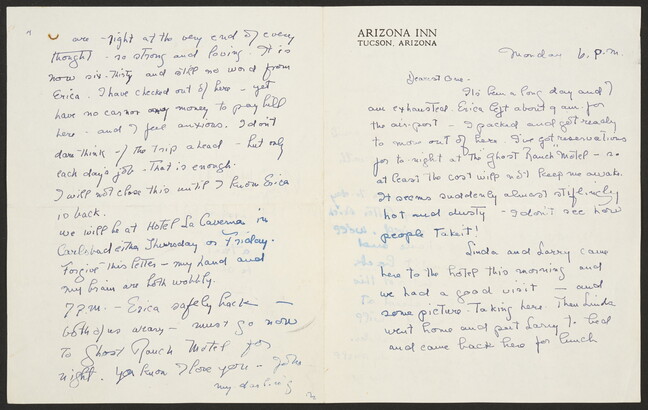 ARIZONA INN
TUCSON, ARIZONA
Monday 6. p.m.
Dearest One -
It's been a long day and I
am exhausted. Erica left about 9 am for
the airport - I packed and got ready
to move out of here. I've got reservations
for to-night at the Ghost Ranch Motel - so
at least the cost will not keep me awake.
It seems suddenly almost stiflingly
hot and dusty - I don't see how
people take it!
Linda and Larry came
here to the hotel this morning and
we had a good visit - and
some picture-taking here. Then Linda
went home and put Larry to bed
and came back here for lunch
are - right at the very end of every
thought - so strong and loving. It is
now six-thirty and still no word from
Erica. I have checked out of here - yet
have no car nor money to pay bill
here - and I feel anxious. I don't
dare think of the trip ahead - but only
each day's job - That is enough.
I will not close this until I know Erica
is back.
We will be at Hotel La Caverna in
Carlsbad either Thursday or Friday.
Forgive this letter - my hand and
my brain are both wobbly.
7 P.M. - Erica safely back -
both of us weary - must go now
to Ghost Ranch Motel for
night. You know I love you -
my darling